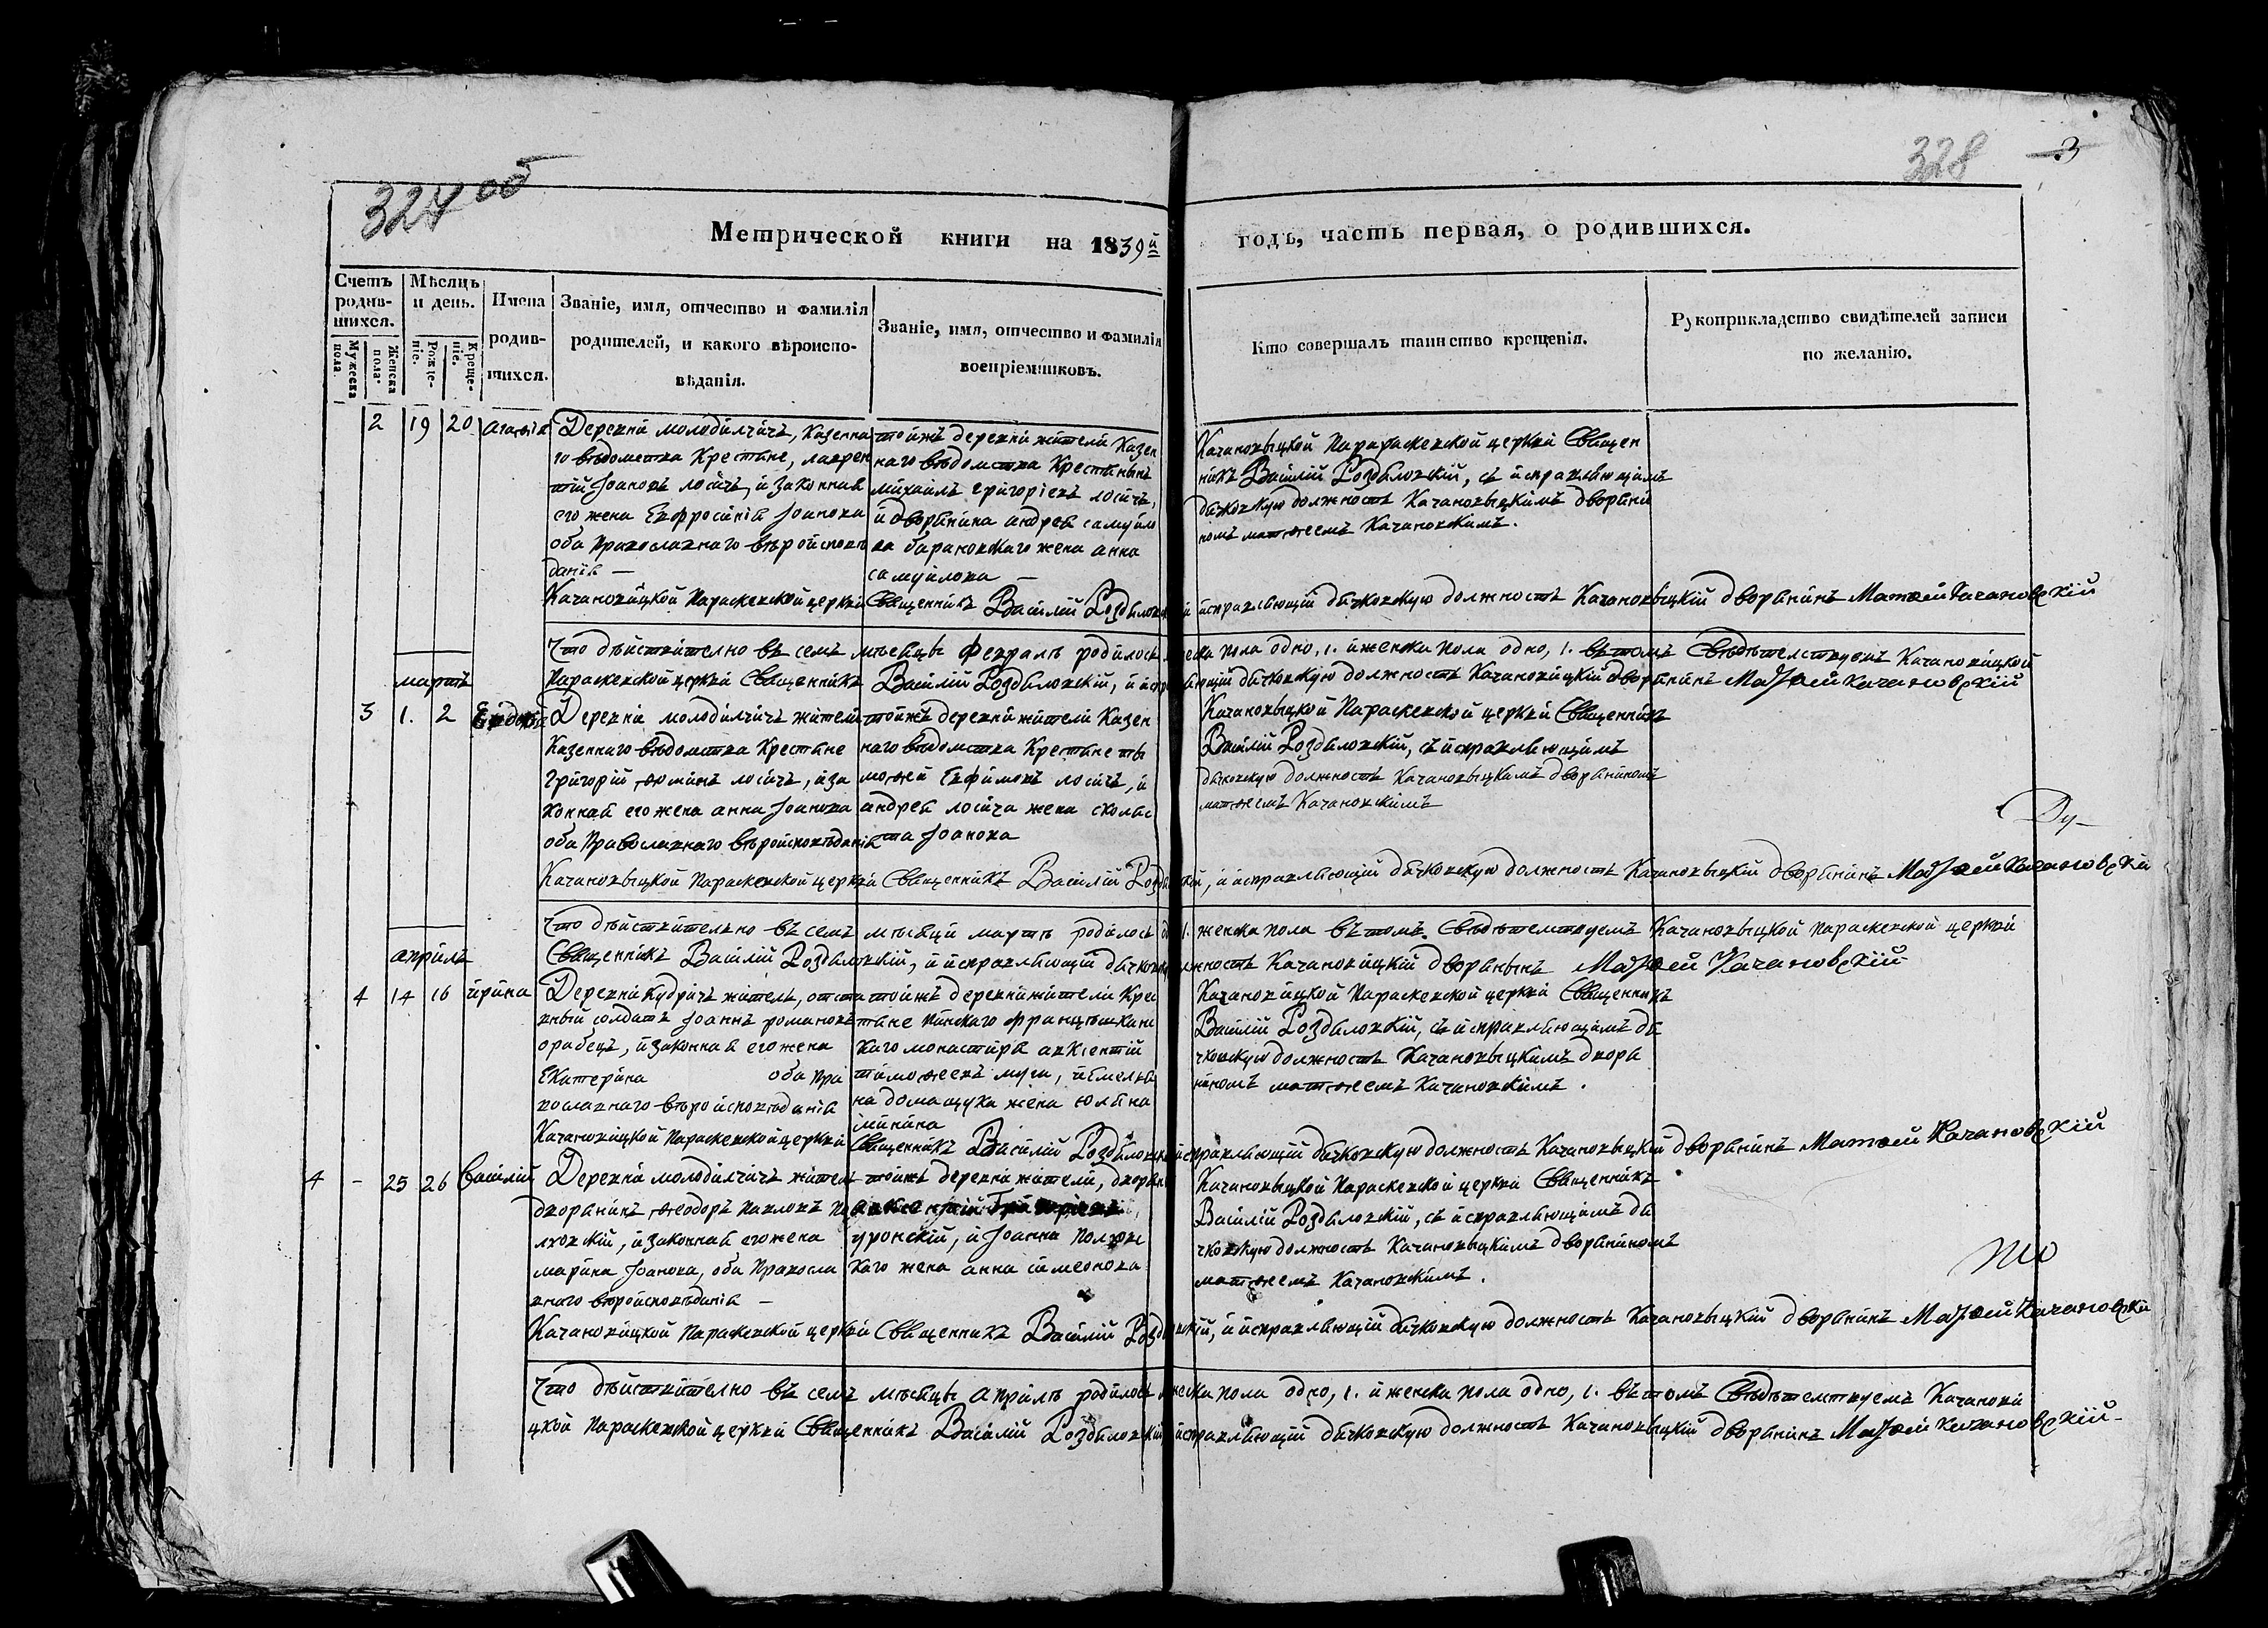 327 об
328
3
Метрической книги на 1839й
годъ, часть первая, о родившихся.
Счетъ родившихся.
Мужеска пола.
Женска пола.
Мѣсяцъ и день.
Рожденіе.
Крещеніе.
Имена родившихся.
Званіе, имя, отчество и фамилія
родителей, и какого вѣроиспо-
вѣданія.
Званіе, имя, отчество и фамилія
воспріемниковъ.
Кто совершалъ таинство крещенія.
Рукоприкладство свидѣтелей записи
по желанію.
2 19 20 Агафія
Деревни молодилчичъ, Казенна
го вѣдомства Крестяне, лаврен
тій Іоановъ лосичъ, и законная
его жена Евфросинія Іоанова
оба Православнаго вѣроисповѣ
данія —
тойжъ деревни жители Казен
наго вѣдомства Крестянинъ
михаилъ григоріевъ лосичъ,
и дворянина андрея самуило
ва барановскаго жена анна
самуилова —
Качановицкой Параскевской церкви Священ
никъ Василій Роздяловскій, съ исправляющимъ
дячковскую должность Качановыцкимъ дворяни
номъ матѳеемъ Качановскимъ.
Качановицкой Параскевской церкви Священникъ Василій Роздяловскій исправляющій дячковскую должность Качановыцкій дворянинъ Матѳей Качановскій
Что дѣйствително въ семъ мѣсяцѣ Февралѣ родилось мужеска пола одно, 1. и женска пола одно, 1. въ томъ Свѣдѣтелствуемъ Качановицкой
Параскевской церкви Священникъ Василій Роздяловскій, и исправляющій дячковскую должность Качановицкій дворянинъ Матѳей Качановскій
мартъ
3 1. 2
Деревни молодилчичъ жители
Казеннаго вѣдомства Крестяне
Григорій ѳоминъ лосичъ, и за
конная его жена анна Іоанова
оба Православнаго вѣроисповѣданія
тойжъ деревни жители Казен
наго вѣдомства Крестяне ти
моѳей Евфимовъ лосичъ, и
андрея лосича жена сколас
та Іоанова
Качановыцкой Параскевской церкви Священникъ
Василій Роздяловскій, съ исправляющимъ
дячковскую должность Качановыцкимъ дворяниномъ
матѳеемъ Качановскимъ
Ду-
Качановыцкой Параскевской церкви Священникъ Василій Роздяловскій, и исправляющій дячковскую должность Качановыцкій дворянинъ Матѳей Качановскій
Что дѣйствително въ семъ мѣсяци мартѣ родилось 1. женска пола въ томъ Свѣдѣтелствуемъ Качановыцкой Параскевской церкви
Священникъ Василій Роздяловскій, и исправляющій дячковскую должность Качановицкій дворянинъ Матѳей Качановскій
апрѣля
4 14 16 ирина
Деревни Кудричъ житель, отста
вный солдатъ Іоаннъ романовъ
орабецъ, и законная его жена
Екатерина оба пра
вославнаго вѣроисповѣданія
тойжъ деревни жители Крес
тяне Пинскаго францишкан
скаго монастыря авксентій
тимоѳеевъ муха, и емелья
на домащука жена юляна
минина
Качановицкой Параскевской церкви Священникъ
Василій Роздяловскій, съ исправляющимъ дя
чковскую должность Качановыцкимъ дворя
ниномъ матѳеемъ Качановскимъ.
Качановицкой Параскевской церкви Священникъ Василій Роздяловскій исправляющій дячковскую должность Качановыцкій дворянинъ Матѳей Качановскій
4 - 25 26 Василій
Деревни молодилчичъ житель
дворянинъ ѳеодоръ Павловъ По
лховскій, и законная его жена
марина Іоанова, оба Правосла
внаго вѣроисповѣданія —
тойжъ деревни жители, дворяне
чуронскій, и Іоанна Полхов
скаго жена анна симеонова
Качановыцкой Параскевской церкви Священникъ
Василій Роздяловскій, съ исправляющимъ дя
чковскую должность Качановыцкимъ дворяниномъ
матѳеемъ Качановскимъ.
Качановицкой Параскевской церкви Священникъ Василій Роздяловскій, и исправляющій дячковскую должность Качановыцкій дворянинъ Матѳей Качановскій
Что дѣйствително въ семъ мѣсяцѣ апрѣлѣ родилось мужеска пола одно, 1. и женска пола одно, 1. въ томъ Свѣдѣтелствуемъ Качанови
цкой Параскевской церкви Священникъ Василій Роздяловскій, исправляющій дячковскую должность Качановыцкій дворянинъ Матѳей Качановскій